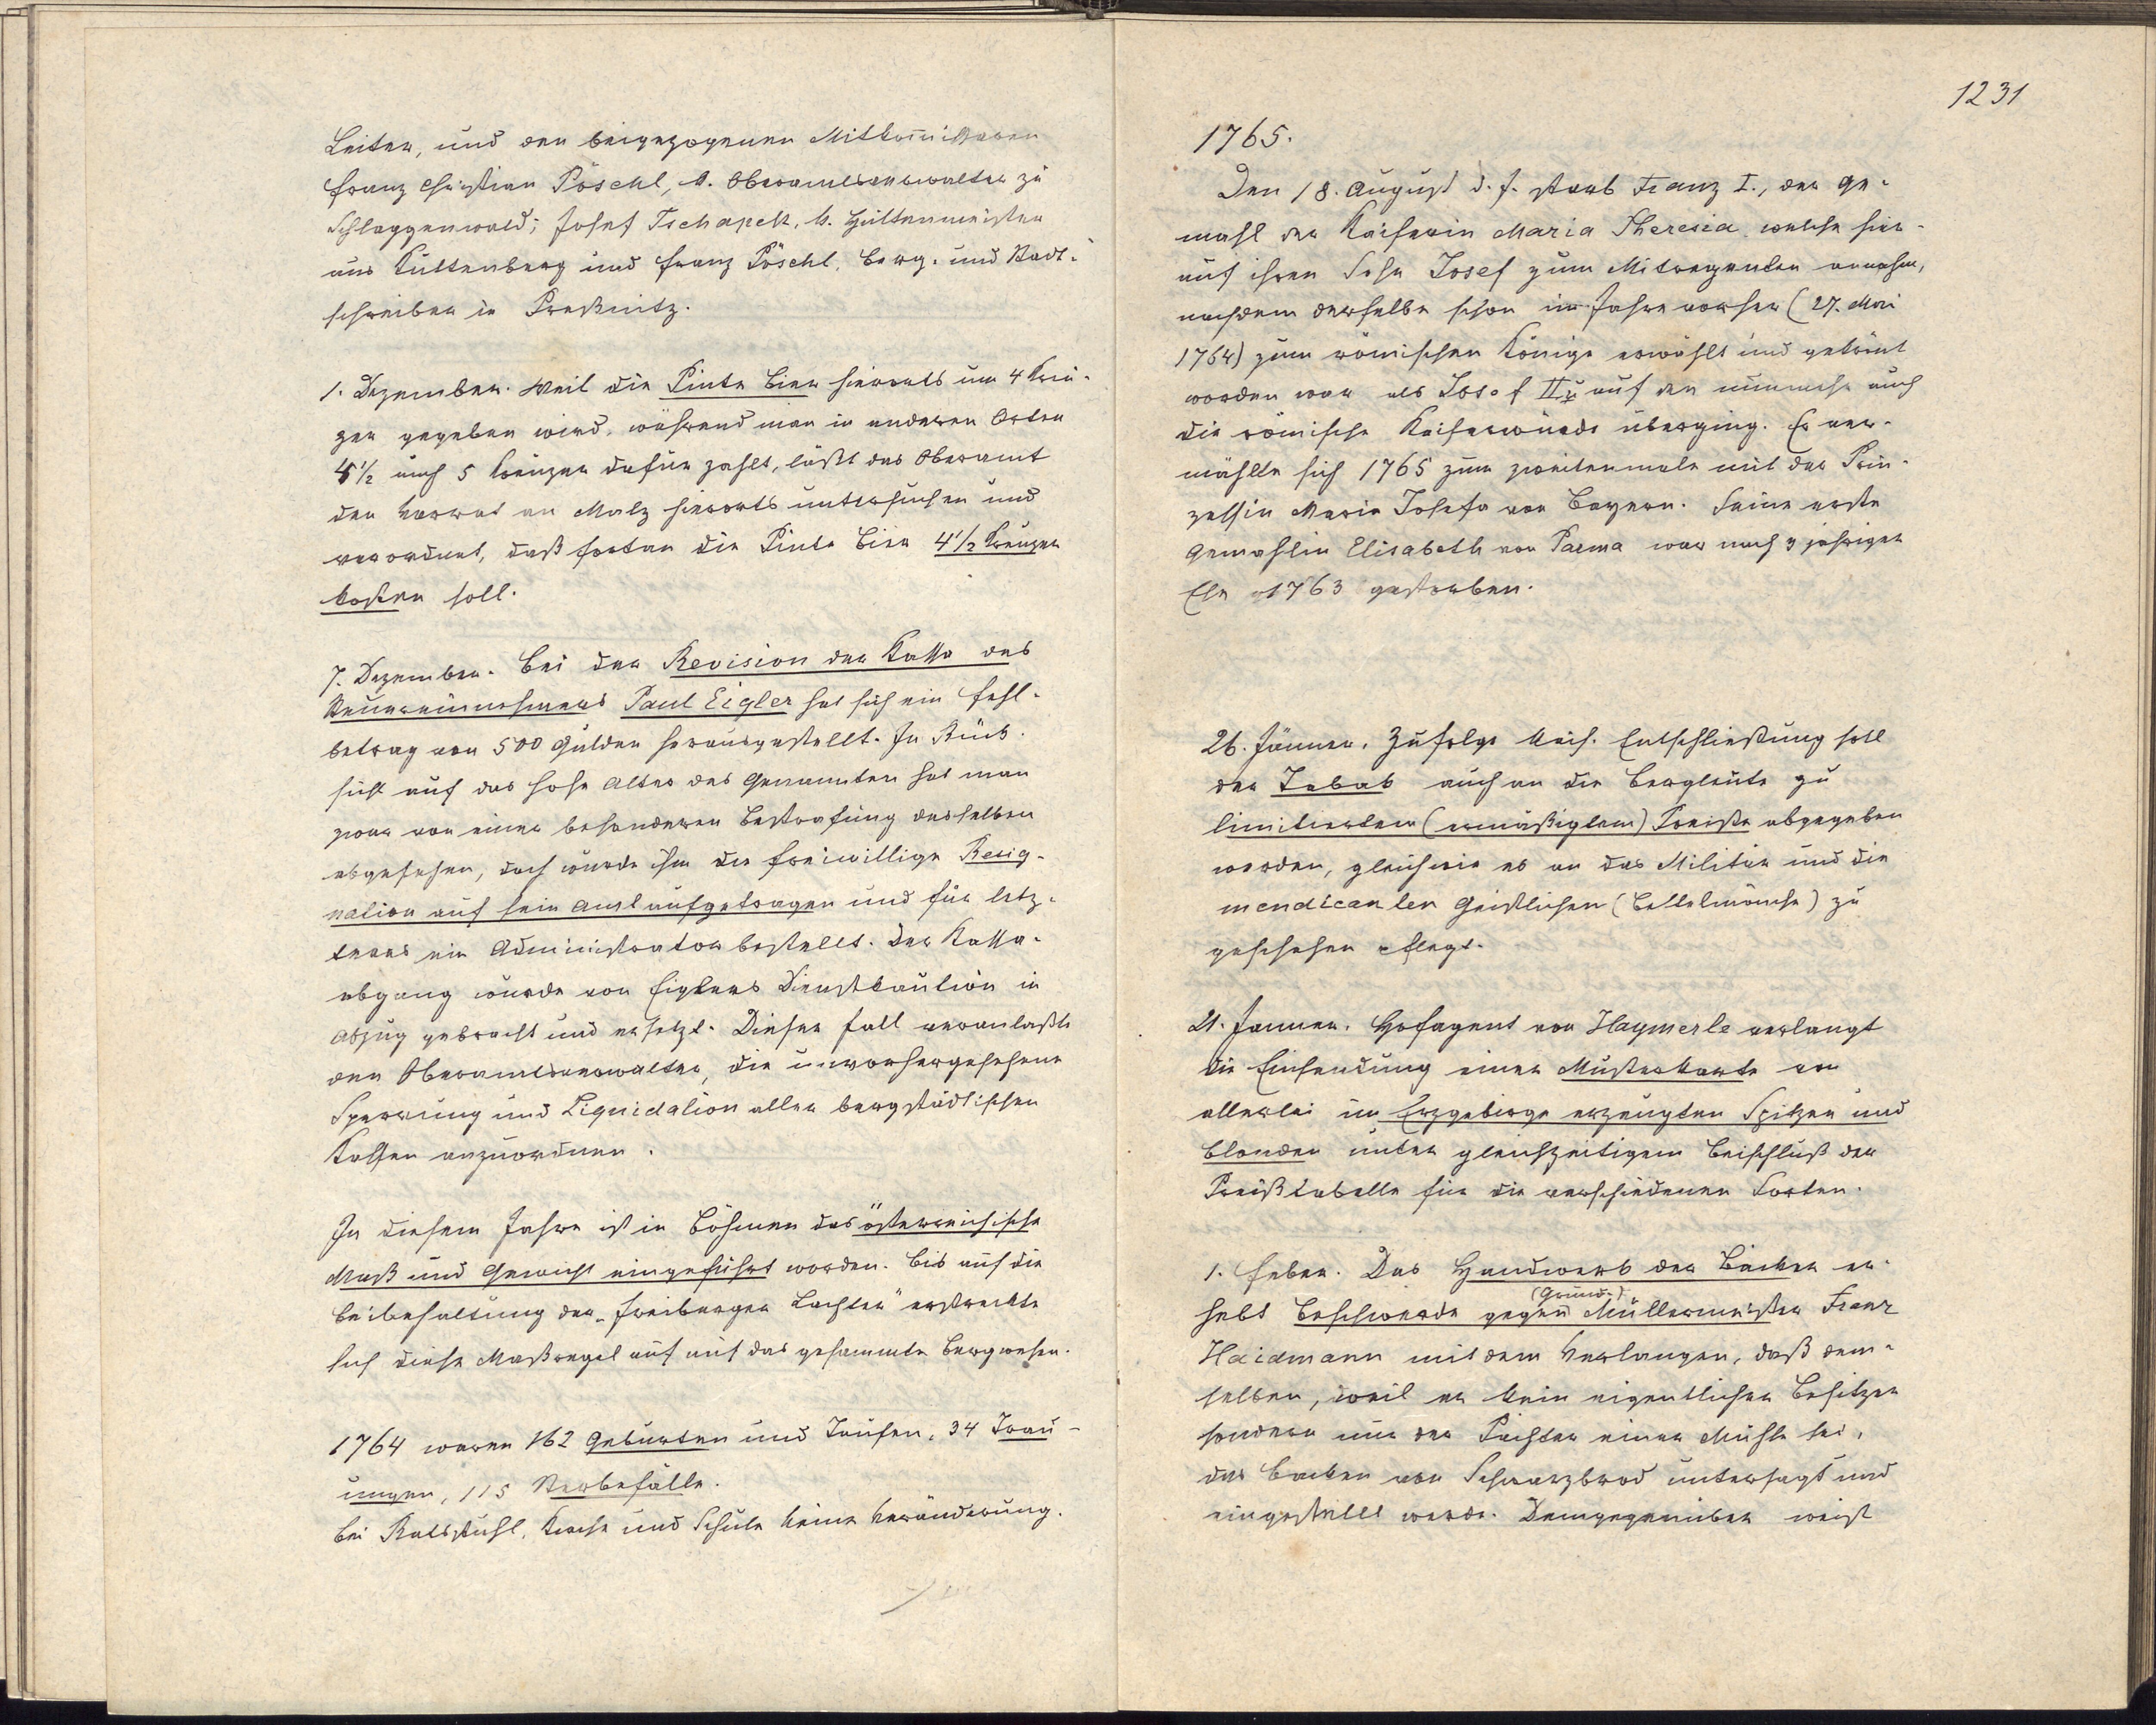 Leiter, und den beigezogenen Mitkom̄issaren
Franz Christian Pöschl, k. Oberamtsverwalter zu
Schlaggenwald; Josef Tschapek, k. Hüttenmeister
aus Kuttenberg und Franz Pöschl, Berg- und Stadt-
schreiber in Preßnitz.
1. Dezember. Weil die Pinte Bier hierorts um 4 Kreu-
zer gegeben wird, während man in anderen Orten
4½ auch 5 Kreuzer dafür zahlt, läßt das Oberamt
den Vorrat an Malz hierorts untersuchen und
verordnet, daß fortan die Pinte Bier 4½ Kreuzer
kosten soll.
7. Dezember. Bei der Revision der Kassa des
Steuereinnehmers Paul Eigler hat sich ein Fehl-
betrag von 500 Gulden herausgestellt. In Rück-
sicht auf das hohe Alter des Genannten hat man
zwar von einer besonderen Bestrafung desselben
abgesehen, doch wurde ihm die freiwillige Resig-
nation auf sein Amt aufgetragen und für letz-
teres ein Administrator bestellt. Der Kassa-
abgang wurde von Eiglers Dienstkaution in
Abzug gebracht und ersetzt. Dieser Fall veranlaßte
den Oberamtsverwalter, die unvorhergesehene
Sperrung und Liquidation aller bergstädtischen
Kassen anzuordnen.
In diesem Jahre ist in Böhmen das österreichische
Maß und Gewicht eingeführt worden. Bis auf die
Beibehaltung der „Freiberger Lachter" erstreckte
sich diese Maßregel auch auf das gesammte Bergwesen.
1764 waren 162 Geburten und Taufen, 34 Trau-
ungen, 115 Sterbefälle.
Bei Ratsstuhl, Kirche und Schule keine Veränderung.
1231
1765.
Den 18. August d. J. starb Franz I., der Ge-
mahl der Kaiserin Maria Theresia, welche hier-
auf ihren Sohn Josef zum Mitregenten annahm,
nachdem derselbe schon im Jahre vorher (27. Mai
1764) zum römischen Könige erwählt und gekrönt
worden war als Josef II u. auf den nunmehr auch
die römische Kaiserwürde überging. Er ver-
mählte sich 1765 zum zweitenmale mit der Prin-
zessin Maria Josefa von Bayern. Seine erste
Gemahlin Elisabeth von Parma war nach 3 jähriger
Ehe 1763 gestorben.
26. Jänner. Zufolge kais. Entschließung soll
der Tabak auch an die Bergleute zu
limitierten (ermäßigtem) Preiße abgegeben
werden, gleichwie es an das Militär und die
mendicanten Geistlichen (Bettelmönche) zu
geschehen pflegt.
21. Janner. Hofagent von Haymerle verlangt
die Einsendung einer Musterkarte von
allerlei im Erzgebirge erzeugten Spitzen und
Blonden unter gleichzeitigem Beischluß der
Preißtabelle für die verschiedenen Sorten.
1. Feber. Das Handwerk der Bäcker er-
(Grund-)
hebt Beschwerde gegen Müllermeister Franz
Haidmann mit dem Verlangen, daß dem-
selben, weil er kein eigentlicher Besitzer
sondern nur der Pächter einer Mühle sei,
das Backen von Schwarzbrod untersagt und
eingestellt werde. Demgegenüber weist